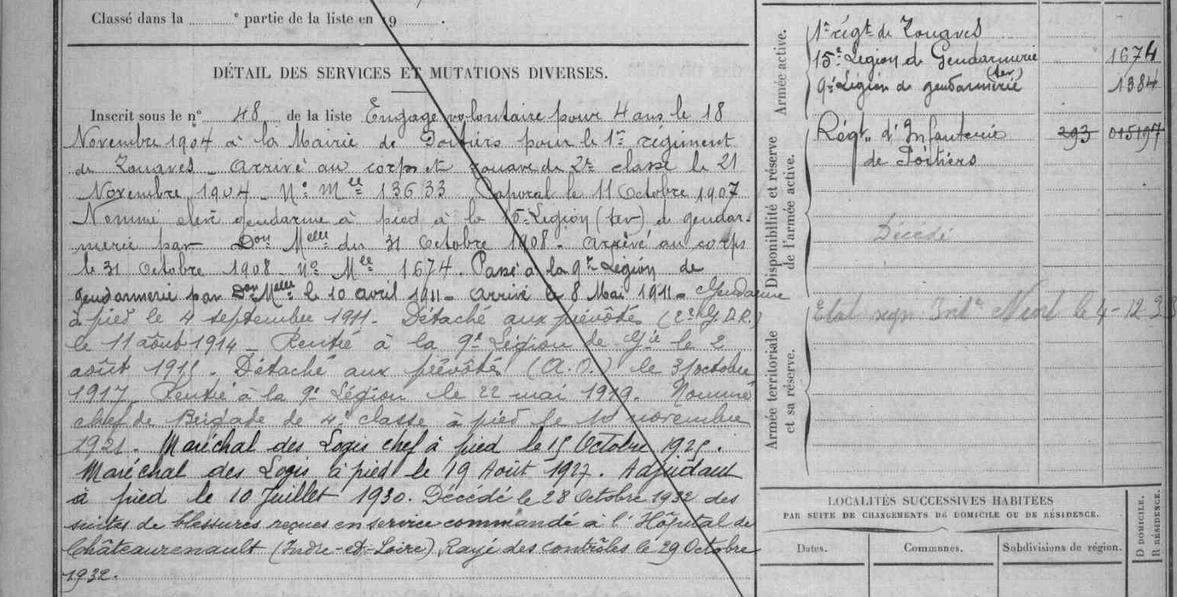 Classé dans la ° partie de la liste en 19 .
DÉTAIL DES SERVICES ET MUTATIONS DIVERSES.
Inscrit sous le n° 48 de la liste Engagé volontaire pour 4 ans le 18
Novembre 1904 à la Mairie de Poitiers pour le 1er régiment
de Zouaves. Arrivé au corps et zouave de 2e classe le 21
Novembre 1904. No Mle 13633 Caporal le 11 Octobre 1907
Nommé élève gendarme à pied à la 15e Légion (ter) de gendar-
merie par Don Melle du 31 Octobre 1908 - arrivé au corps
le 31 Octobre 1908 - no Mle 1674. Passé à la 9e Légion de
gendarmerie par Don Melle le 10 avril 1911 - arrivé le 8 Mai 1911 - Gendarme
à pied le 4 septembre 1911. Détaché aux prévôtés
le 11 août 1914 - Rentré à la 9e Légion de Gie le 2
août 1915. Détaché aux prévôtés (A.O.) le 31 octobre
1917. Rentré à la 9e Légion le 22 mai 1919. Nommé
chef de Brigade de 4e classe à pied le 10 novembre
1921. Maréchal des Logis chef à pied le 15 Octobre 1925.
Maréchal des Logis à pied le 19 Août 1927. Adjudant
à pied le 10 Juillet 1930. Décédé le 28 Octobre 1932 des
suites de blessures reçues en service commandé à l'Hôpital de
Châteaurenault (Indre-et-Loire) Rayé des contrôles le 29 Octobre
1932.
Armée active.
1er régt de Zouaves
15e Légion de Gendarmerie 1674
9e Légion de gendarmerie (ter) 1384
Disponibilité et réserve
de l'armée active.
Régt d'Infanterie 293 015197
de Poitiers
Décédé
Armée territoriale
et sa réserve.
Etat Niort le 4-12-33
LOCALITÉS SUCCESSIVES HABITÉES
PAR SUITE DE CHANGEMENTS DE DOMICILE OU DE RÉSIDENCE.
Dates.
Communes.
Subdivisions de région.
D DOMICILE.
R RÉSIDENCE.